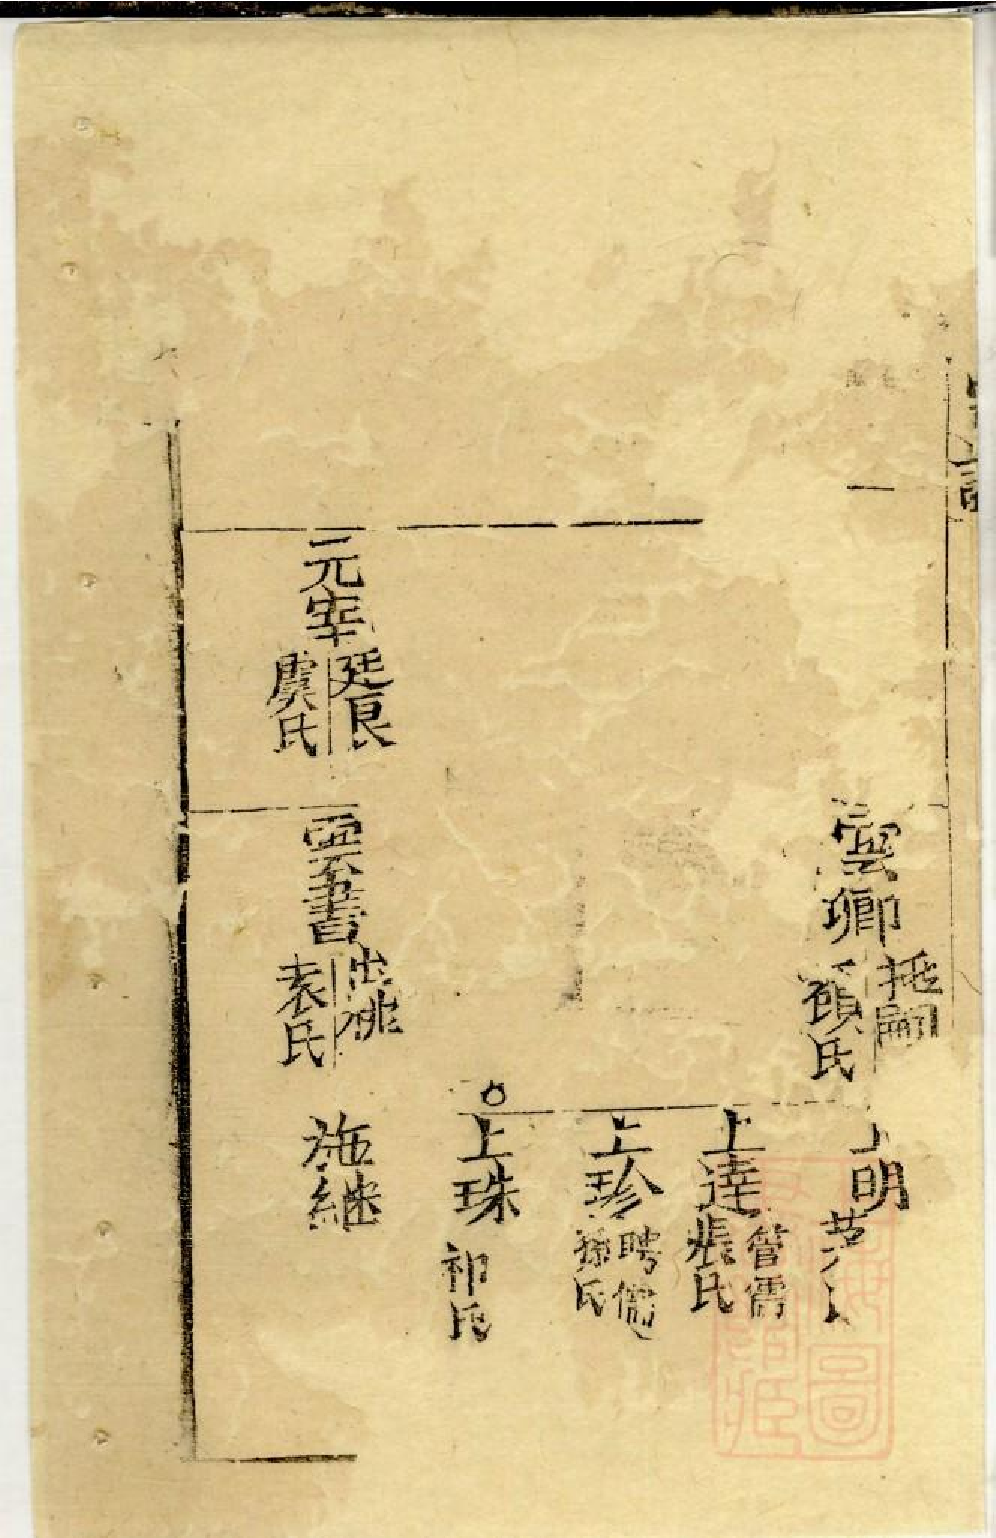 雲卿
挺嗣
顧氏
明
上達
管儒
張氏
上珍
聘儒
孫氏
上珠
祁氏
元宰
廷良
虞氏
雲書
出祧
袁氏
施繼